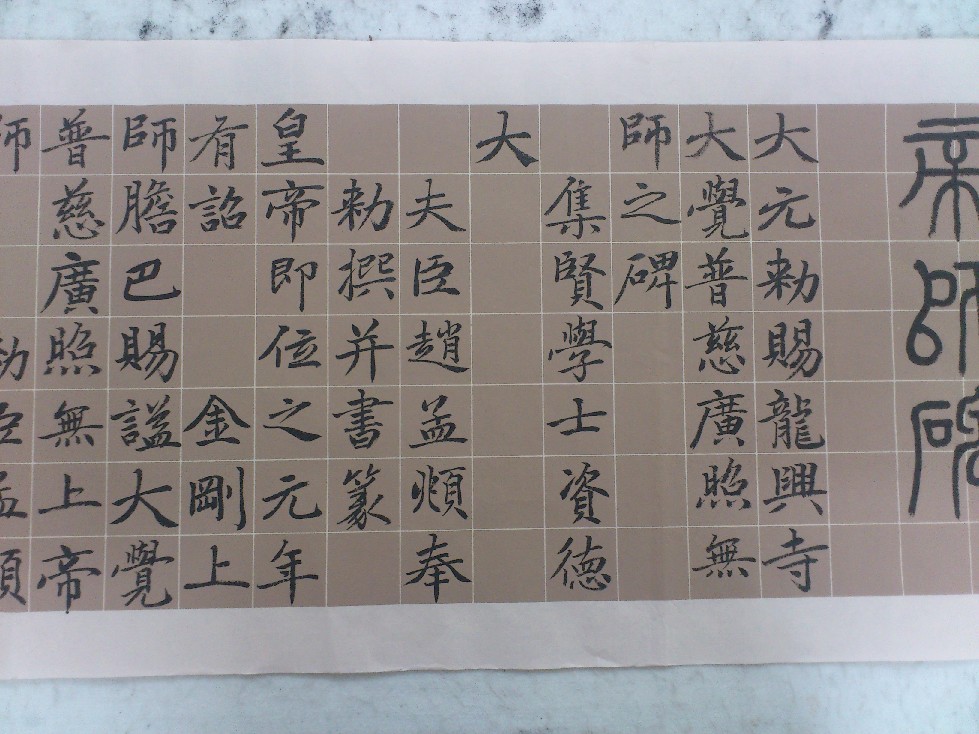 帝師碑
大元勅賜龍興寺
大覺普慈廣照無
師之碑
集賢學士資德
大
夫臣趙孟頫奉
勅撰并書篆
皇帝即位之元年
有詔金剛上
師膽巴賜謚大覺
普慈廣照無上帝
師勅臣孟頫